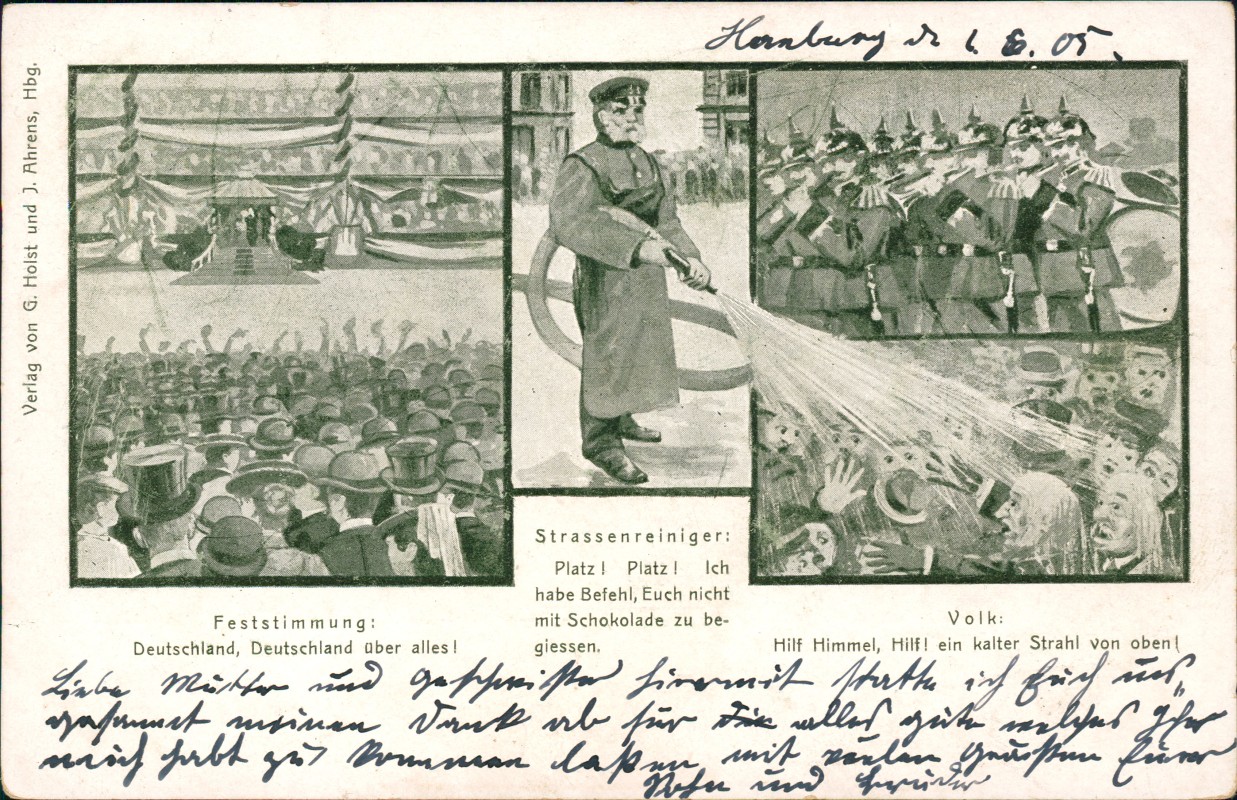 Hamburg d 1. 6. 05.
Verlag von G. Holst und J. Ahrens, Hbg.
Feststimmung:
Deutschland, Deutschland über alles!
Strassenreiniger:
Platz! Platz! Ich
habe Befehl, Euch nicht
mit Schokolade zu be-
giessen.
Volk:
Hilf Himmel, Hilf! ein kalter Strahl von oben!
Liebe Mutter und Geschwister hiermit statte ich Euch
meinen Dank ab für alles gute welches Ihr
mich habt zu kommen laßen mit vielen Grüßen Euer
Sohn und Bruder